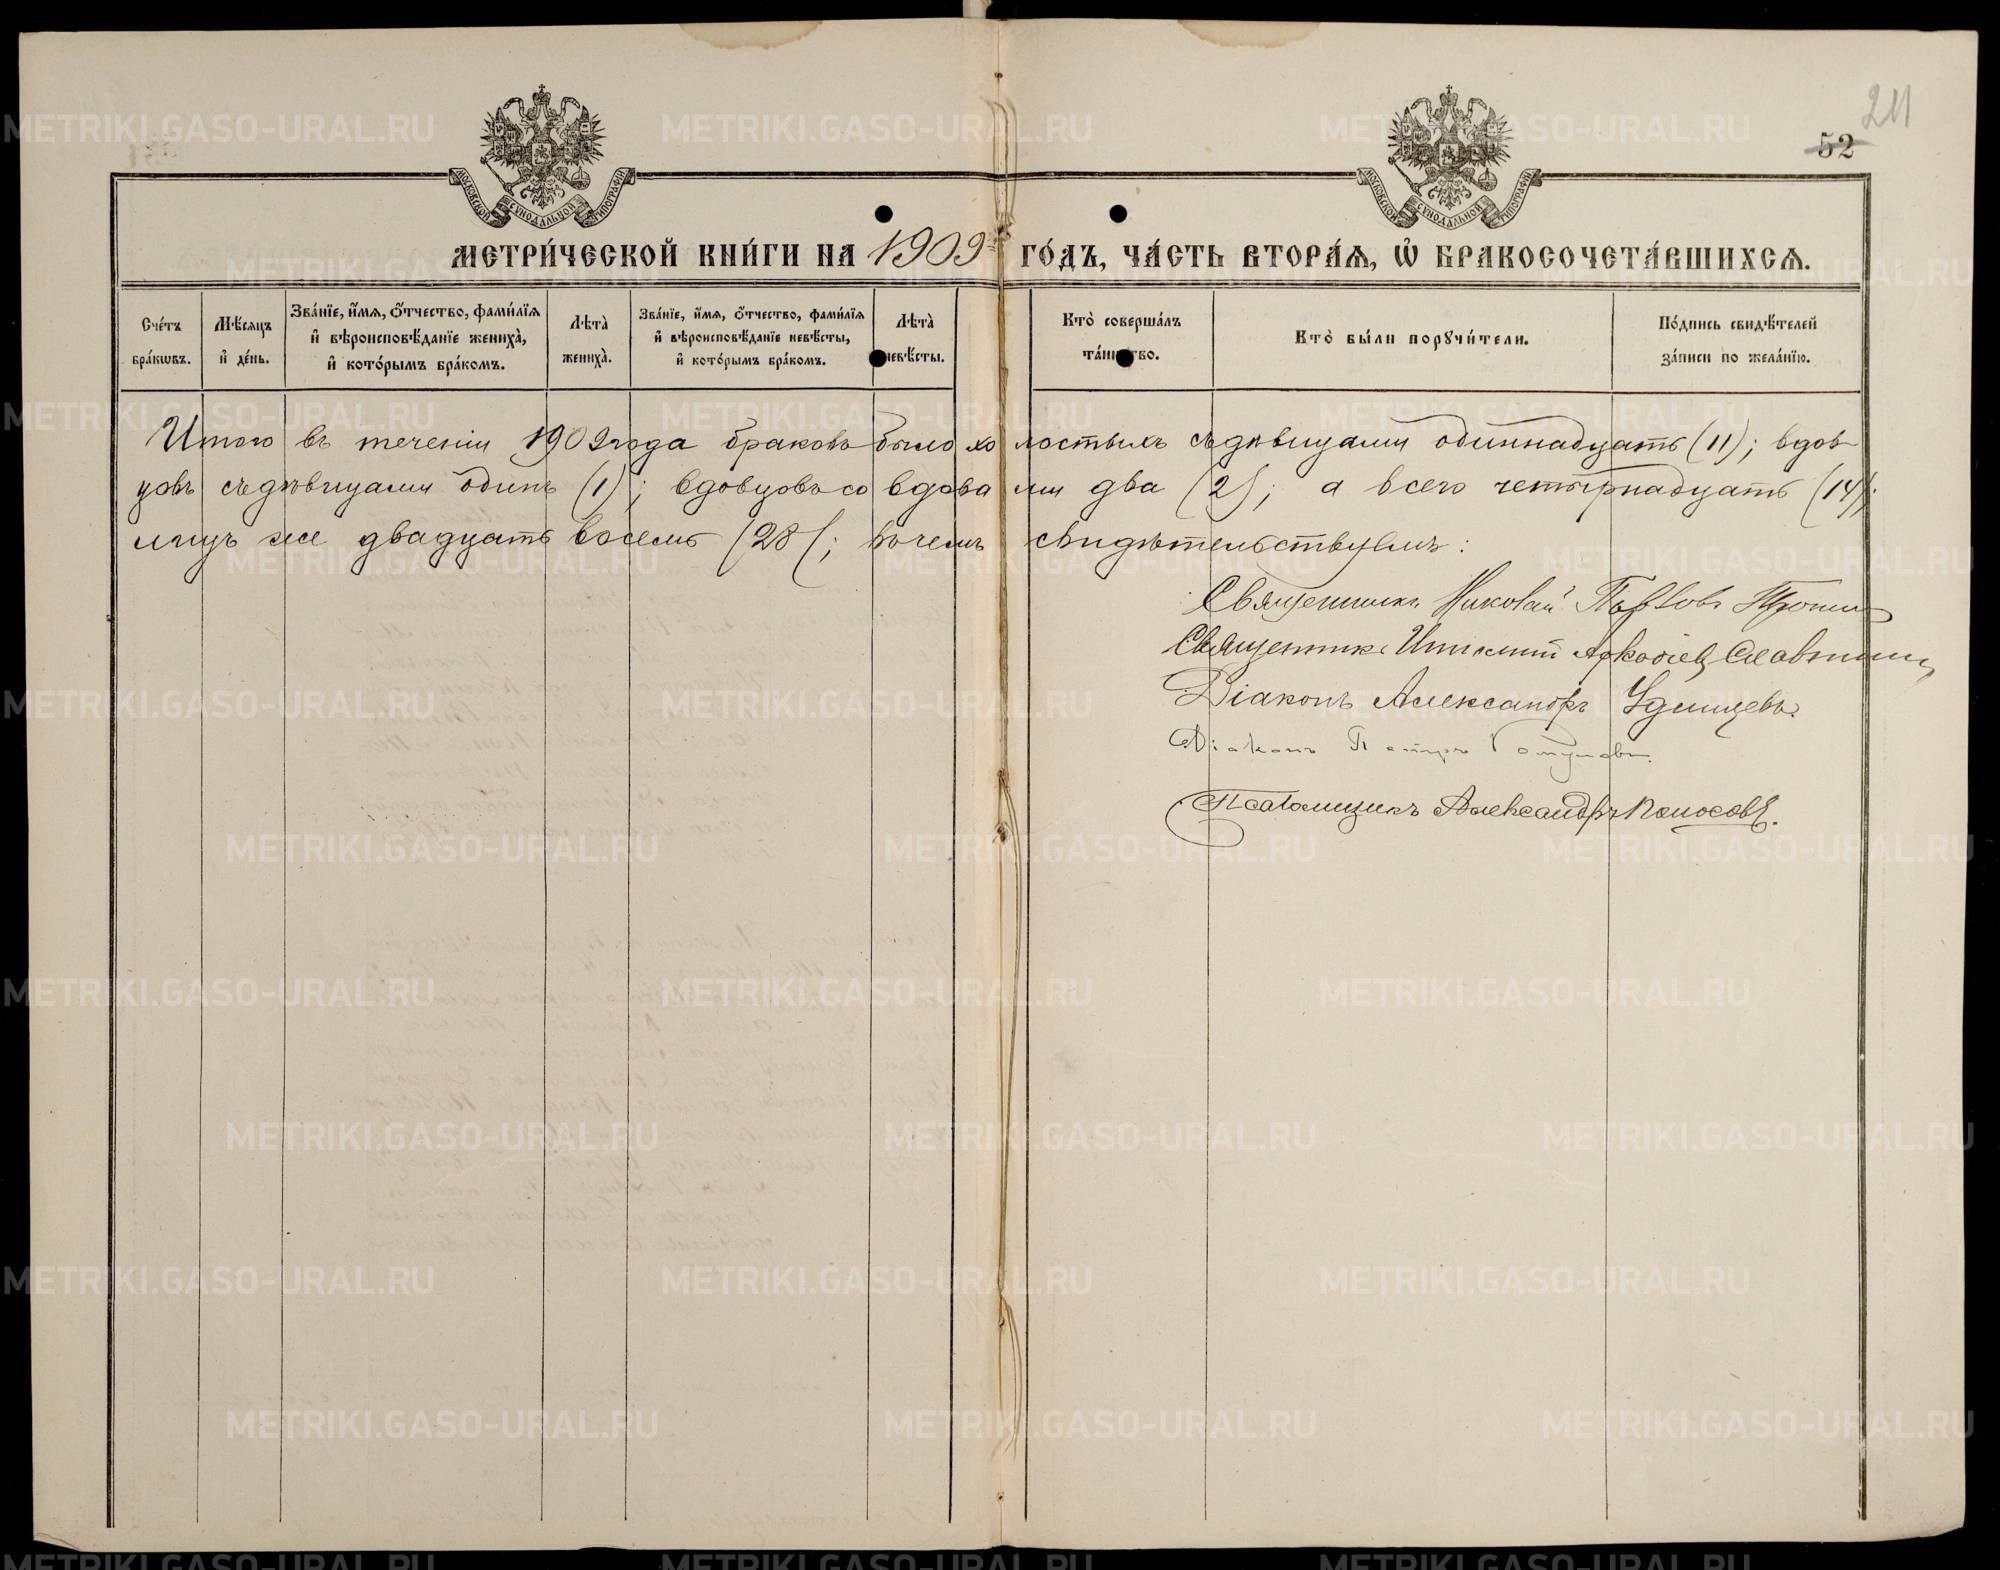 211
52
МОСКОВСКОЙ СУНОДАЛЬНОЙ ТИПОГРАФІИ
МОСКОВСКОЙ СУНОДАЛЬНОЙ ТИПОГРАФІИ
МЕТРИ́ЧЕСКОЙ КНИ́ГИ НА 1909 ГО́ДЪ, ЧА́СТЬ ВТОРА́Ѧ, Ѽ БРАКОСОЧЕТА́ВШИХСѦ.
Сче́тъ бра́кѡвъ.
Мѣ́сѧцъ и҆ де́нь.
Зва́нїе, и҆́мѧ, ѻ҆́тчество, фами́лїѧ и҆ вѣроисповѣ́данїе жениха̀, и҆ кото́рымъ бра́комъ.
Лѣта̀ жениха̀.
Зва́нїе, и҆́мѧ, ѻ҆́тчество, фами́лїѧ и҆ вѣроисповѣ́данїе невѣ́сты, и҆ кото́рымъ бра́комъ.
Лѣта̀ невѣ́сты.
Кто̀ соверша́лъ та́инство.
Кто̀ бы́ли порꙋчи́тели.
По́дпись свидѣ́телей за́писи по жела́нїю.
Итого въ теченіи 1909 года браковъ было холостыхъ съ дѣвицами одиннадцать (11); вдов-
цовъ съ дѣвицами одинъ (1); вдовцовъ со вдовами два (2); а всего четырнадцать (14);
лицъ же двадцать восемь (28); въ чемъ свидѣтельствуемъ:
Священникъ Николай
Священникъ Аркадіевъ
Діаконъ Александръ Удинцевъ.
Діаконъ Петръ
Псаломщикъ Александръ Поносовъ.